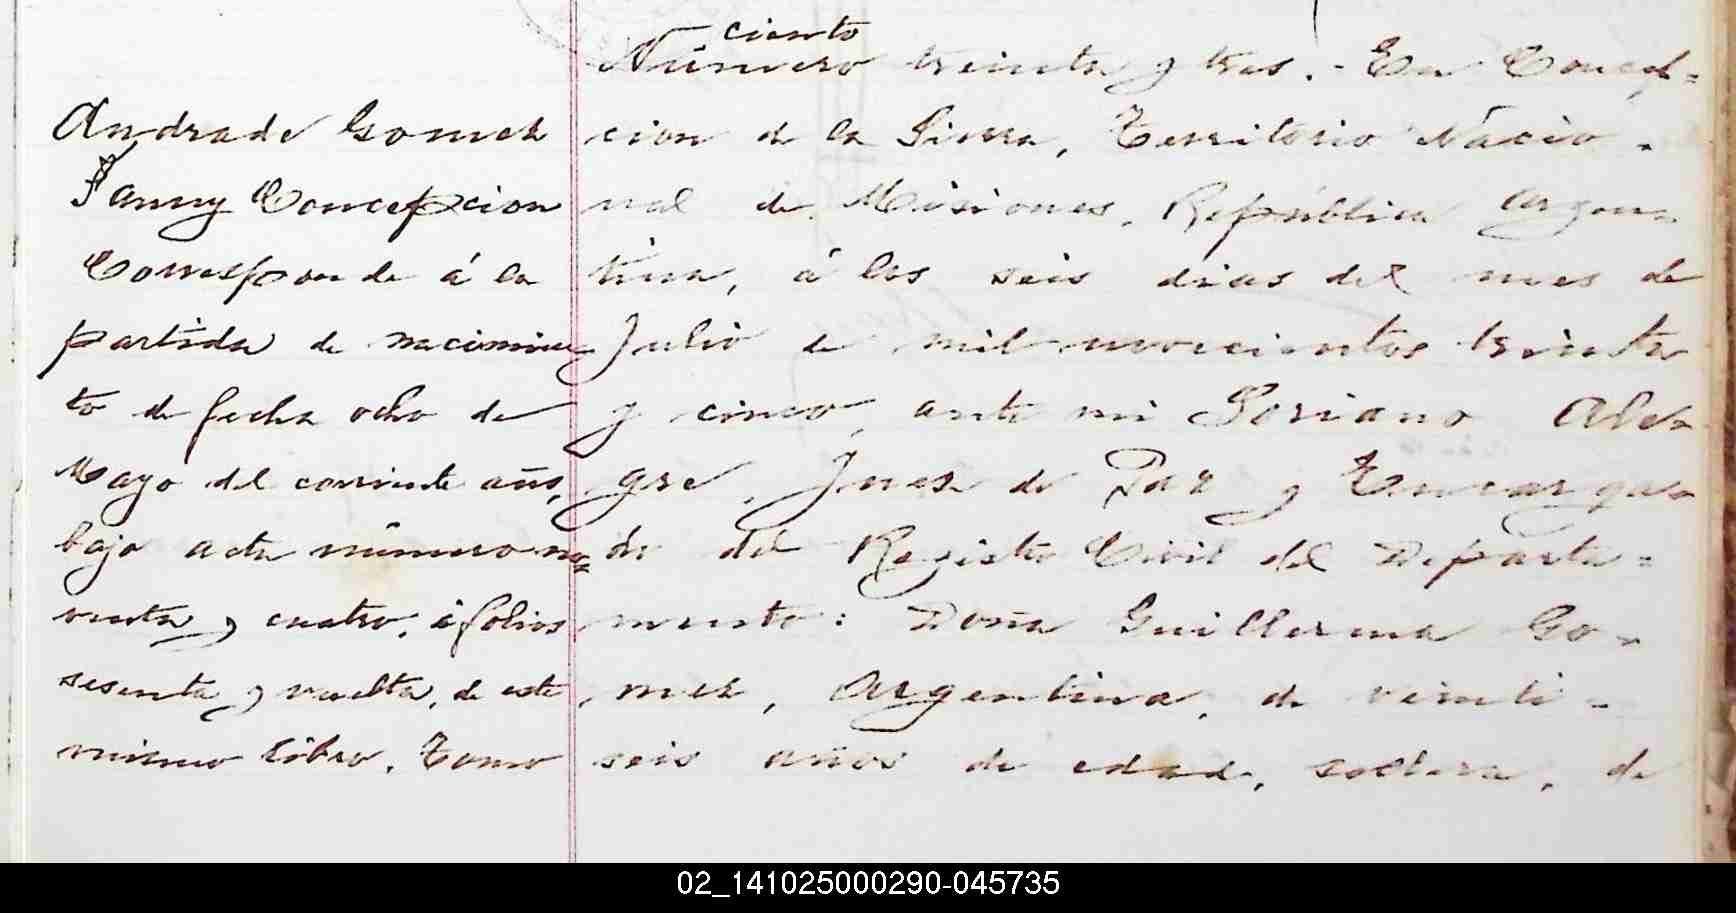 Andrade Gomez
Fanny Concepcion
Corresponde á la
partida de nacimien
to de fecha ocho de
Mayo del corriente año,
bajo acta número no=
venta y cuatro, á folios
sesenta y vuelta, de este
mismo libro. Tomo
ciento
Número treinta y tres.- En Concep=
cion de la Sierra, Territorio Nacio-
nal de Misiones, República Argen-
tina, á los seis dias del mes de
Julio de mil novecientos treinta
y cinco, ante mi Soriano Ale-
gre, Juez de Paz y Encarga-
do del Registro Civil del Departa-
mento: Doña Guillerma Go-
mez, Argentina, de veinti-
seis años de edad, soltera, de
02_141025000290-045735